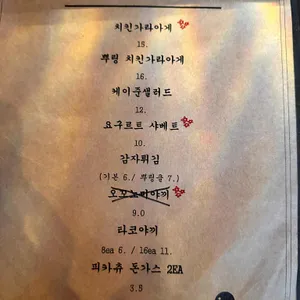 치킨가라아게
15.
뿌링 치킨가라아게
16.
케이준샐러드
12.
요구르트 샤베트
10.
감자튀김
(기본 6./ 뿌링클 7.)
오꼬노미야끼
9.0
타코야끼
8ea 6. / 16ea 11.
피카츄 돈가스 2EA
3.5